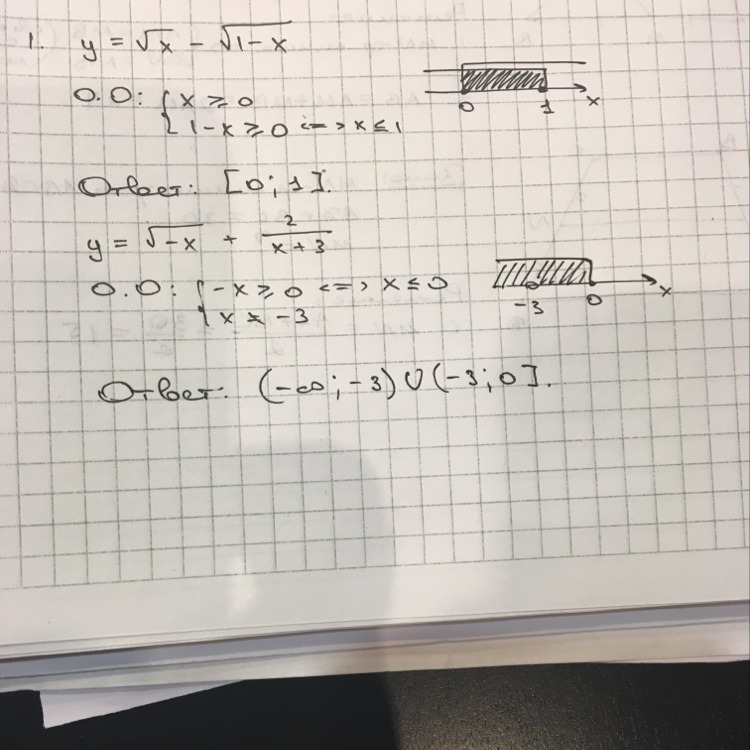 1. y = √x − √1−x
О.О: { x ≥ 0
{ 1−x ≥ 0 <=> x ≤ 1
0 1 x
Ответ: [0; 1].
y = √−x + 2/(x+3)
О.О: { −x ≥ 0 <=> x ≤ 0
{ x ≠ −3
−3 0 x
Ответ: (−∞; −3) ∪ (−3; 0].